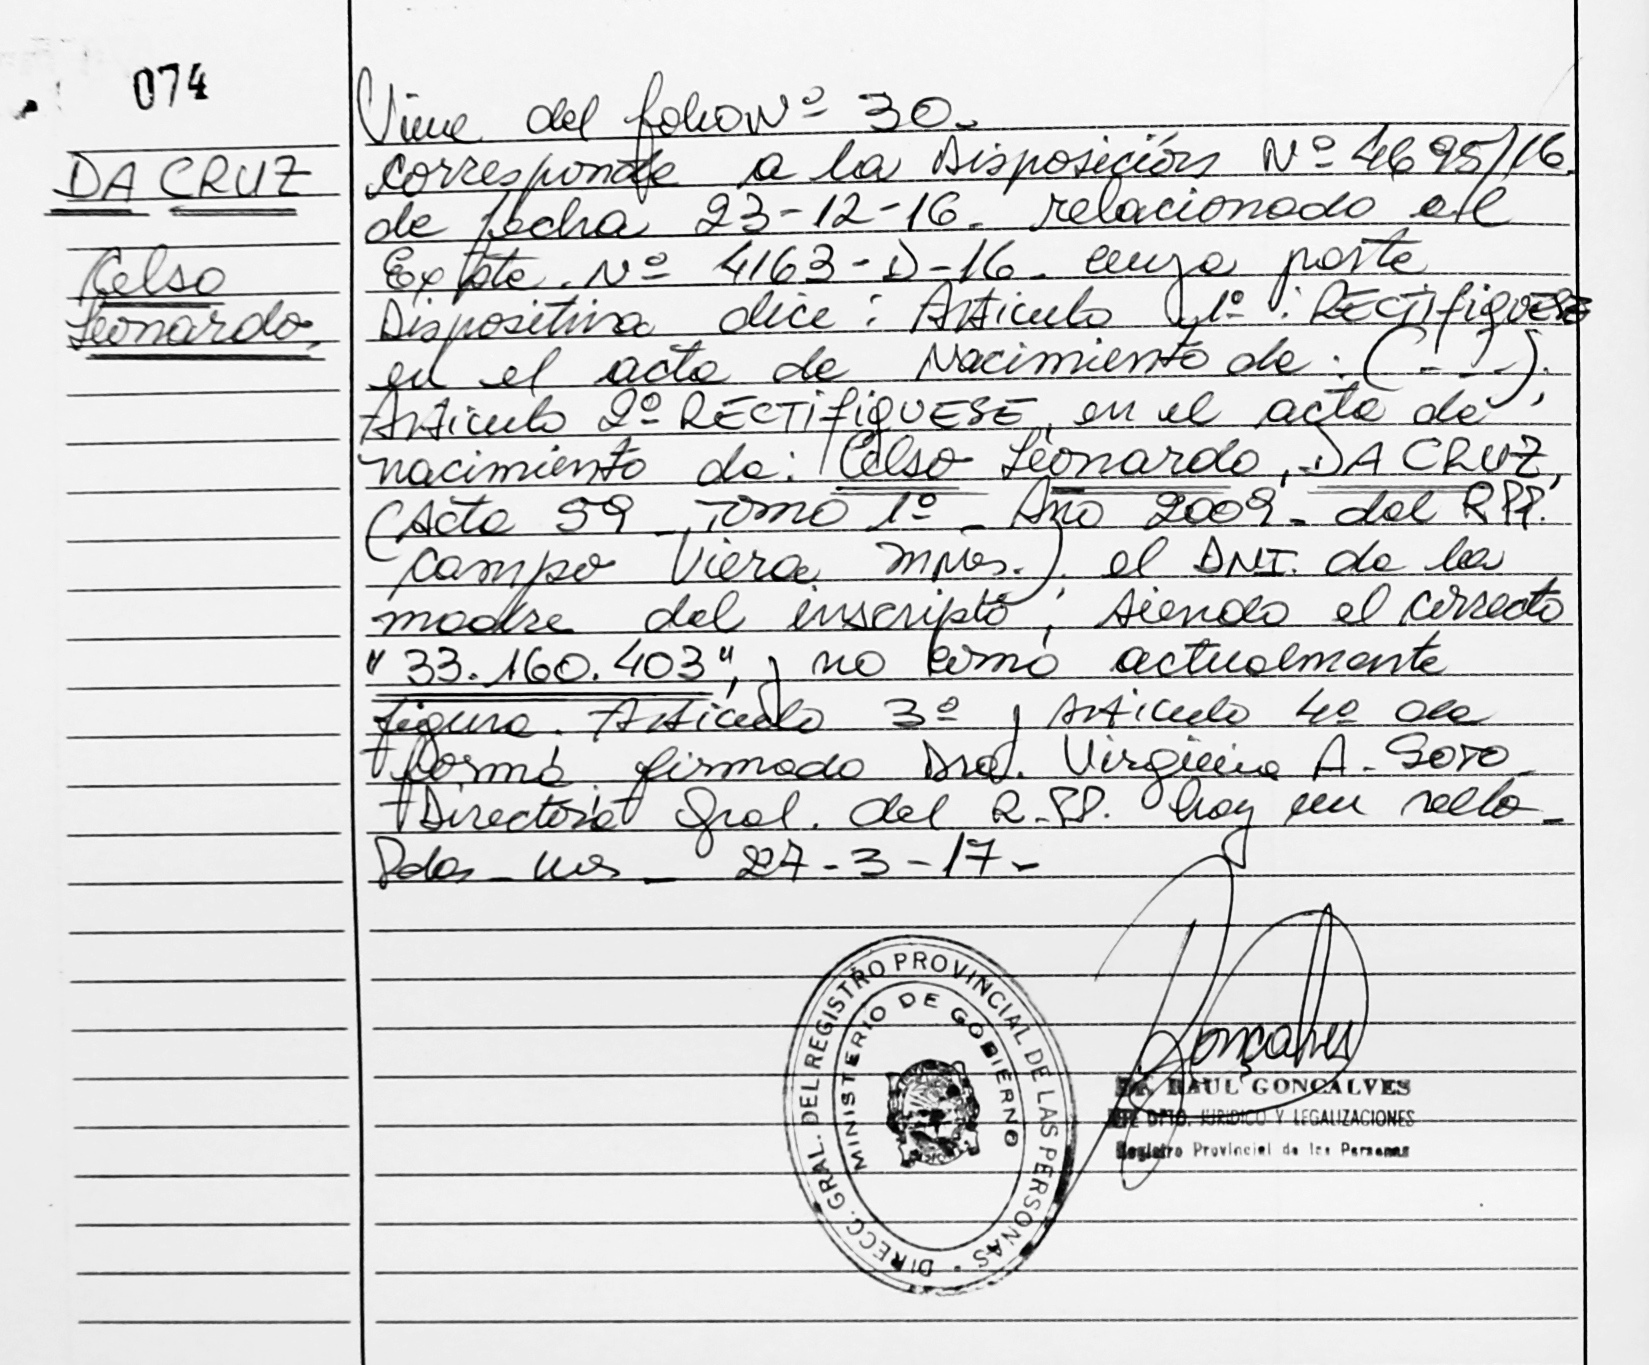 074
DA CRUZ
Celso
Leonardo.
Viene del folio Nº 30.
corresponde a la Disposición Nº 4695/16
de fecha 23-12-16. relacionado al
Expte. Nº 4163-D-16. cuya parte
Dispositiva dice: Articulo 1º: RECTifiQUESE
en el acta de Nacimiento de: (---).
Articulo 2º RECTifiQUESE, en el acta de
nacimiento de: Celso Leonardo, DA CRUZ,
(Acta 59 - Tomo 1º - Año 2009 - del RPP.
Campo Viera Mnes.). el DNI. de la
madre del inscripto, siendo el correcto
"33.160.403", y no como actualmente
figura. Articulo 3º y Articulo 4º de
forma firmado Dra. Virginia A. Soto
Directora Gral. del R.PP. hay un sello -
Pdas - Mes - 27-3-17-
DIRECC. GRAL. DEL REGISTRO PROVINCIAL DE LAS PERSONAS
MINISTERIO DE GOBIERNO
Goncalves
Dr. RAUL GONCALVES
DPTO. JURIDICO Y LEGALIZACIONES
Registro Provincial de las Personas